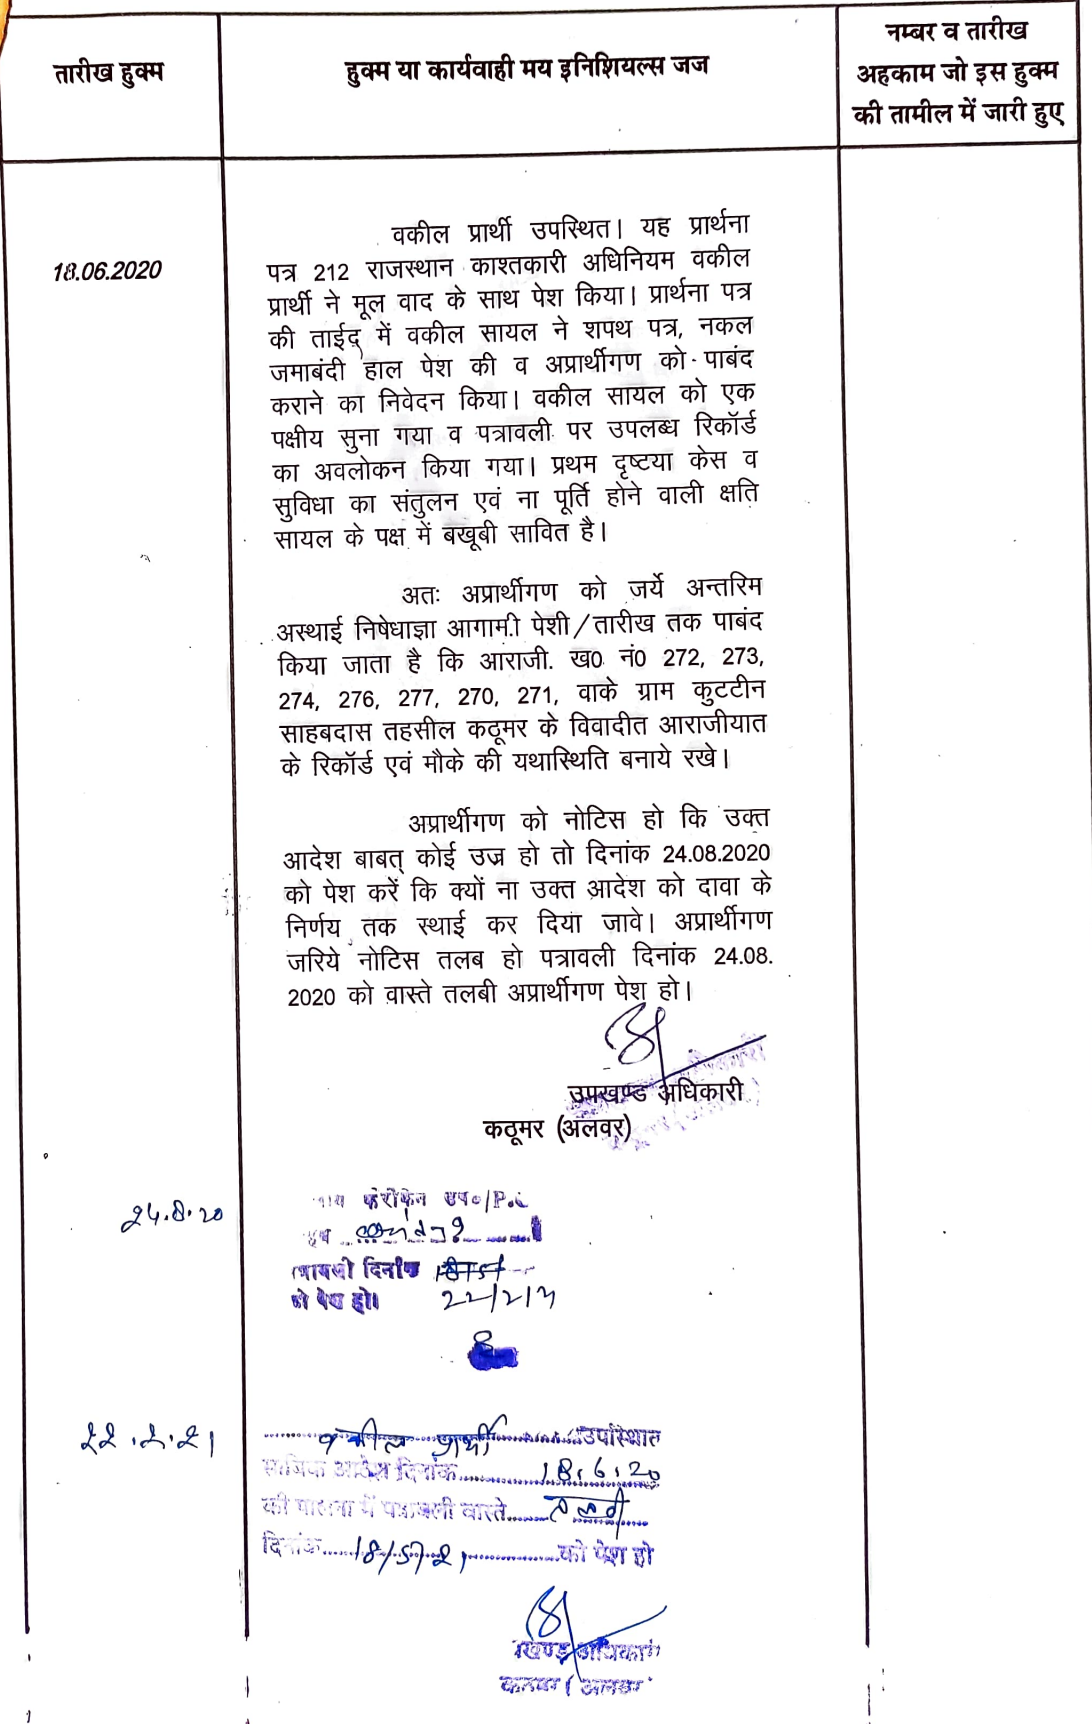 तारीख हुक्म
हुक्म या कार्यवाही मय इनिशियल्स जज
नम्बर व तारीख
अहकाम जो इस हुक्म
की तामील में जारी हुए
18.06.2020
वकील प्रार्थी उपस्थित। यह प्रार्थना
पत्र 212 राजस्थान काश्तकारी अधिनियम वकील
प्रार्थी ने मूल वाद के साथ पेश किया। प्रार्थना पत्र
की ताईद् में वकील सायल ने शपथ पत्र, नकल
जमाबंदी हाल पेश की व अप्रार्थीगण को पाबंद
कराने का निवेदन किया। वकील सायल को एक
पक्षीय सुना गया व पत्रावली पर उपलब्ध रिकॉर्ड
का अवलोकन किया गया। प्रथम दृष्टया केस व
सुविधा का संतुलन एवं ना पूर्ति होने वाली क्षति
सायल के पक्ष में बखूबी सावित है।
अतः अप्रार्थीगण को जर्ये अन्तरिम
अस्थाई निषेधाज्ञा आगामी पेशी/तारीख तक पाबंद
किया जाता है कि आराजी. ख0 नं0 272, 273,
274, 276, 277, 270, 271, वाके ग्राम कुटटीन
साहबदास तहसील कठूमर के विवादीत आराजीयात
के रिकॉर्ड एवं मौके की यथास्थिति बनाये रखे।
अप्रार्थीगण को नोटिस हो कि उक्त
आदेश बाबत् कोई उज्र हो तो दिनांक 24.08.2020
को पेश करें कि क्यों ना उक्त आदेश को दावा के
निर्णय तक स्थाई कर दिया जावे। अप्रार्थीगण
जरिये नोटिस तलब हो पत्रावली दिनांक 24.08.
2020 को वास्ते तलबी अप्रार्थीगण पेश हो।
उपखण्ड अधिकारी
कठूमर (अलवर)
24.8.20
दिनांक
को पेश हो।
22.2.21
वकील प्रार्थी उपस्थित
आदेश दिनांक 18.6.20
की पालना में पत्रावली वास्ते तलबी
दिनांक 18/5/21 को पेश हो